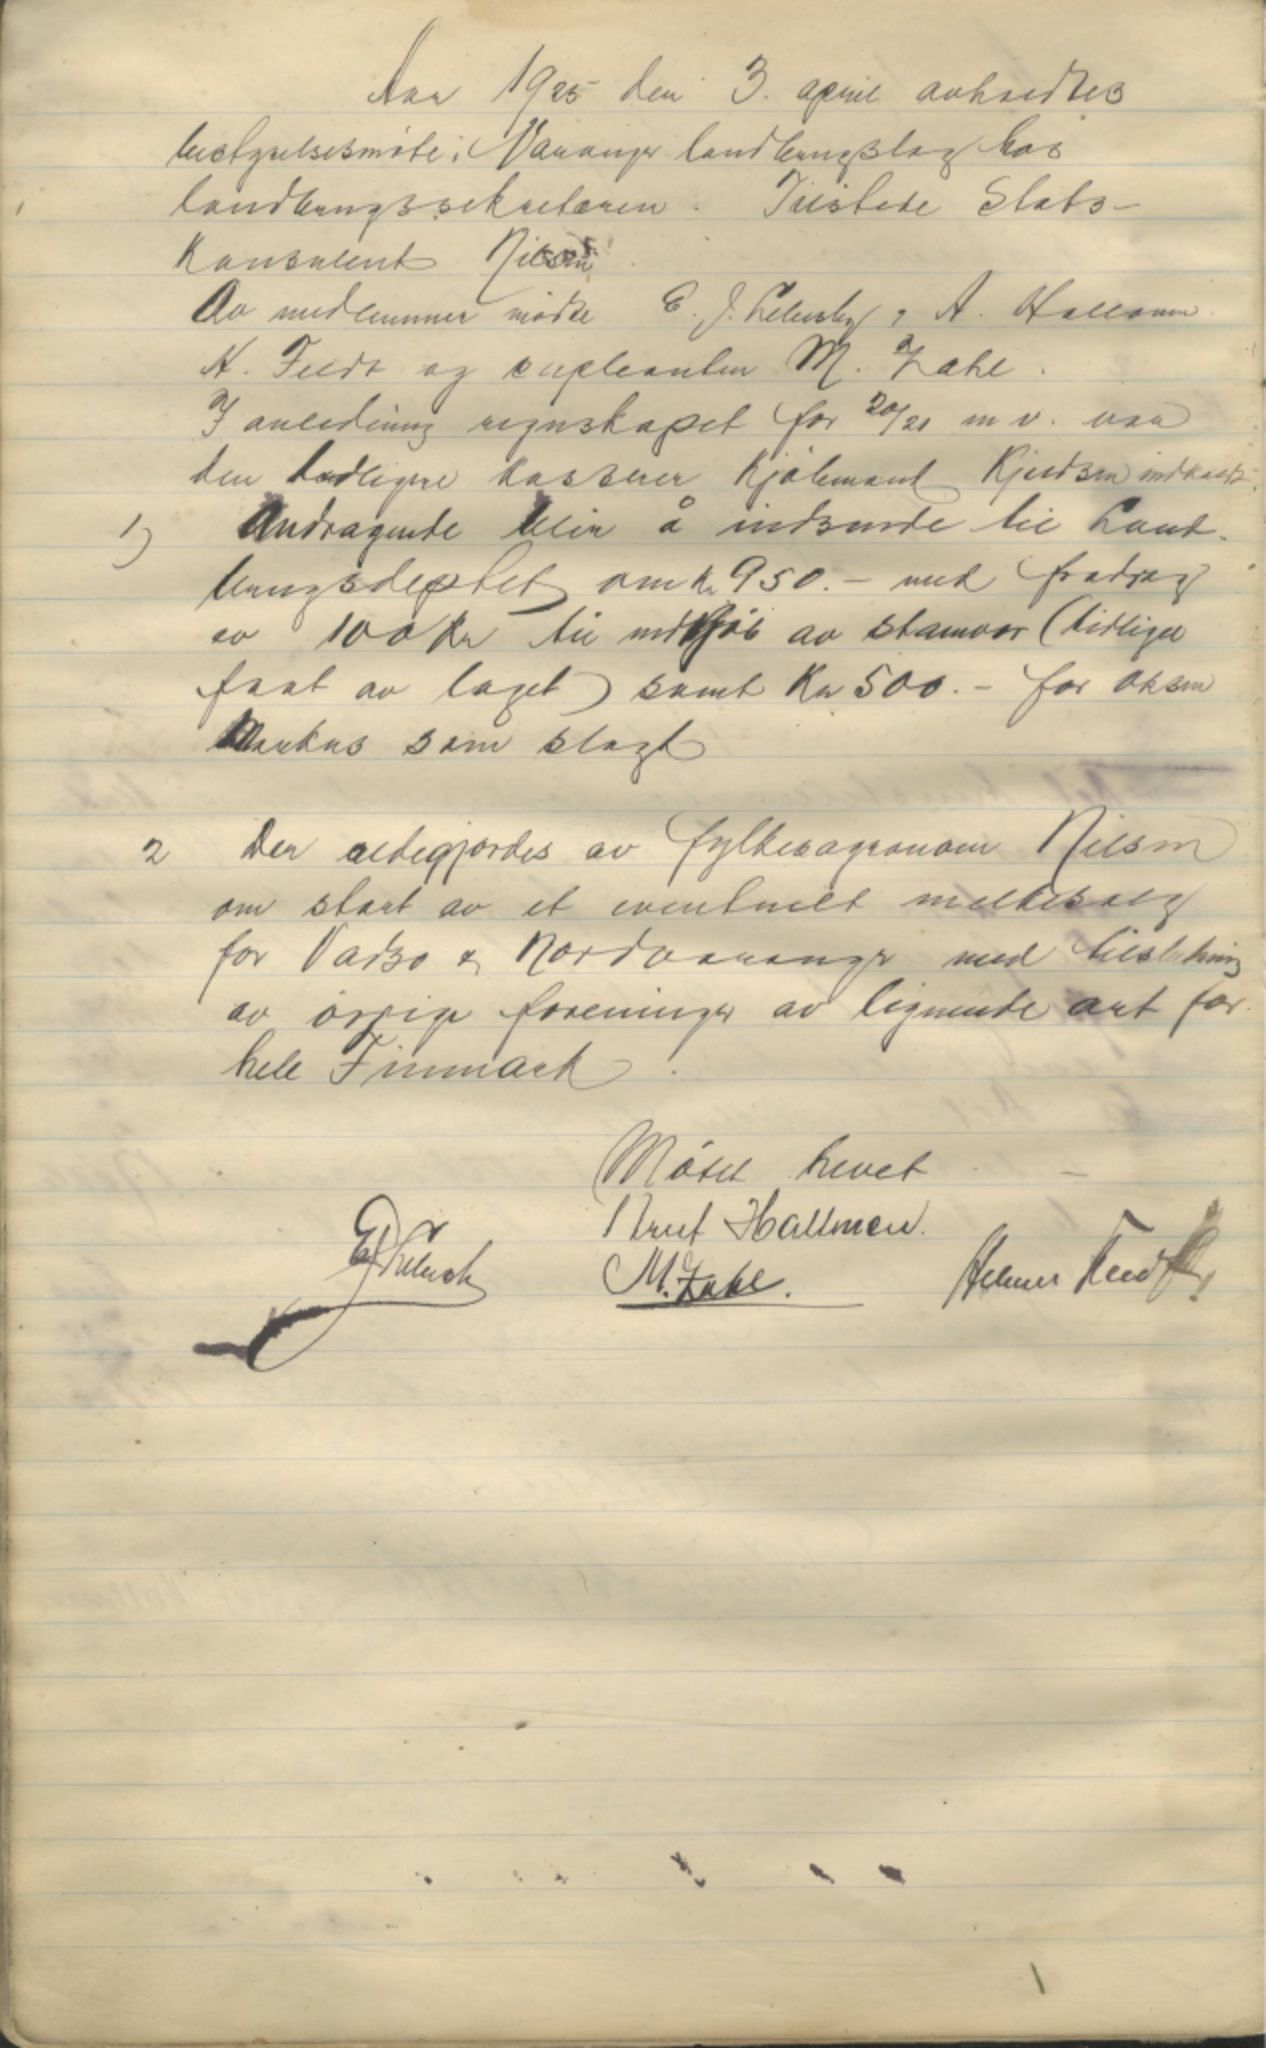 Aar 1925 den 3. april avholdtes
bestyrelsesmöte i Varanger landbrugslag hos
landbrugssekretæren. Tilstede Stats-
konsulent Nilsen
Av medlemmer mödte E. J. Lebesby, A. Hallonen
H. Feedt og supleanten M. Zahl.
I anledning regnskapet for 20/21 m v. var
den tidligere kasserer Kjöbmand Kjeldsen indkaldt.
1) Andragende blir å indsende til Land-
brugsdeptet om kr 950.- med fradrag
av 100 kr til indkjöb av stamvær (tidligere
faat av laget) samt Kr 500.- for oksen
Markus som slagt
2 Der redegjordes av fylkesagronom Nilsen
om start av et eventuelt melkesalg
for Vadsö & Nordvaranger med tilslutning
av övrige foreninger av lignende art for
hele Finmark.
Mötet hevet
Hallonen
E J Lebesby M. Zahl. Helmer Feedt